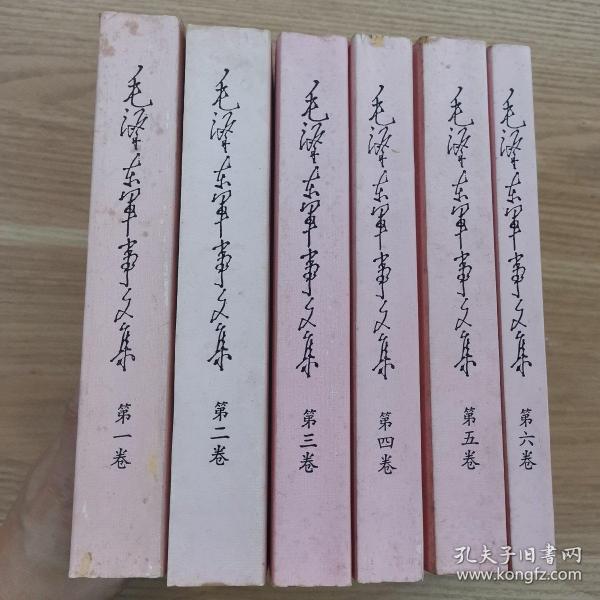 毛泽东軍事文集
第一卷
毛泽东軍事文集
第二卷
毛泽东軍事文集
第三卷
毛泽东軍事文集
第四卷
毛泽东軍事文集
第五卷
毛泽东軍事文集
第六卷
孔夫子旧書网
www.kongfz.com